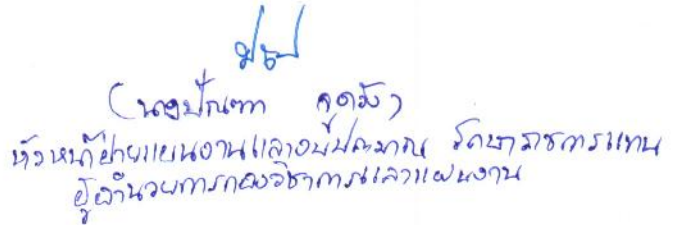 (นางปัณฑา
หัวหน้าฝ่ายแผนงานและงบประมาณ รักษาราชการแทน
ผู้อำนวยการกองวิชาการและแผนงาน